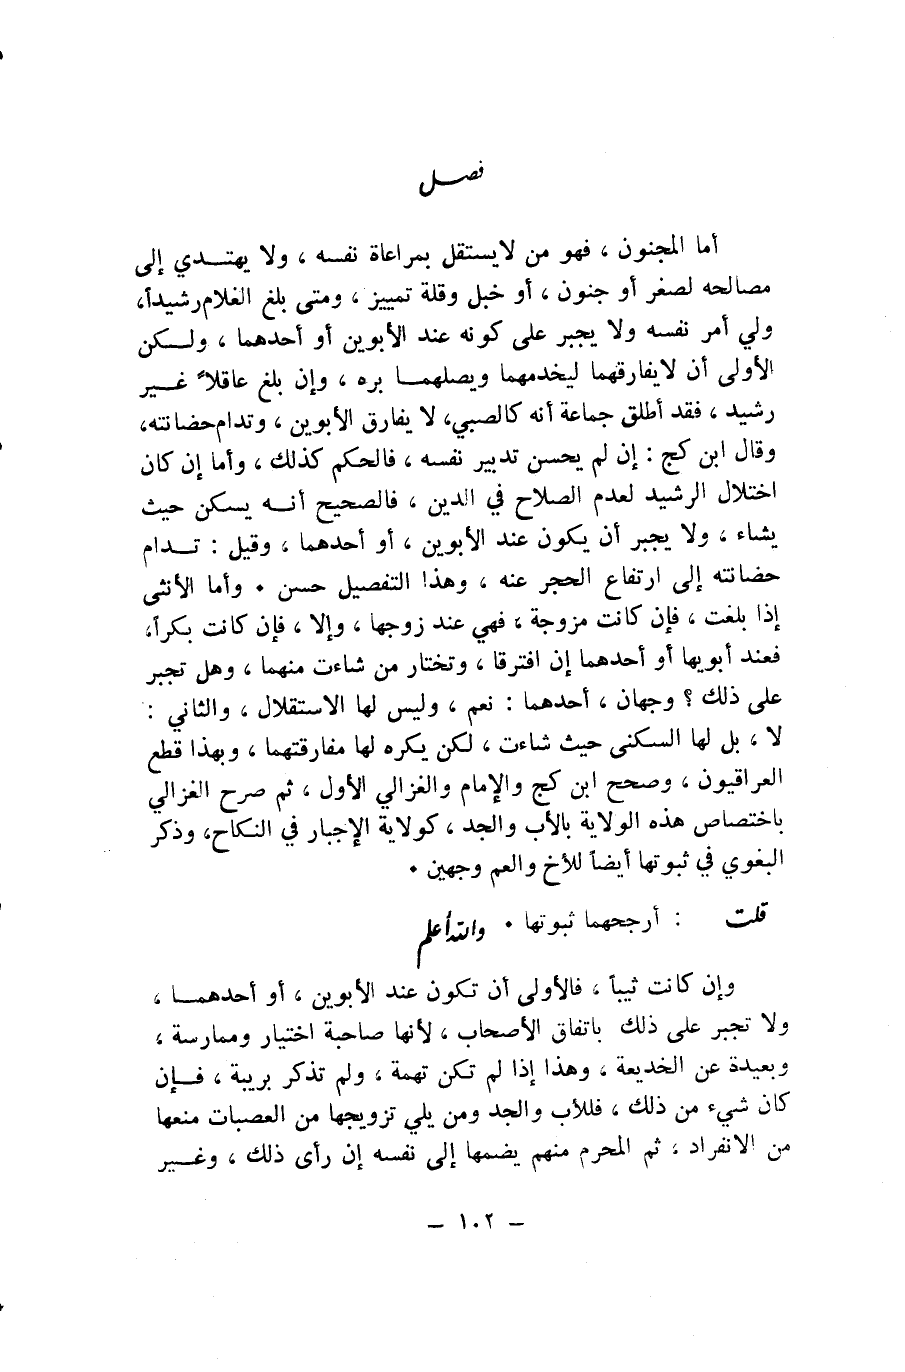 فصل
أما المجنون ، فهو من لايستقل بمراعاة نفسه ، ولا يهتدي إلى
مصالحه لصغر أو جنون ، أو خبل وقلة تمييز ، ومتى بلغ الغلام رشيداً،
ولي أمر نفسه ولا يجبر على كونه عند الأبوين أو أحدهما ، ولكن
الأولى أن لايفارقهما ليخدمهما ويصلهما بره ، وإن بلغ عاقلاً غير
رشيد ، فقد أطلق جماعة أنه كالصبي، لا يفارق الأبوين ، وتدام حضانته،
وقال ابن كج : إن لم يحسن تدبير نفسه ، فالحكم كذلك ، وأما إن كان
اختلال الرشيد لعدم الصلاح في الدين ، فالصحيح أنه يسكن حيث
يشاء ، ولا يجبر أن يكون عند الأبوين ، أو أحدهما ، وقيل : تدام
حضانته إلى ارتفاع الحجر عنه ، وهذا التفصيل حسن . وأما الأنثى
إذا بلغت ، فإن كانت مزوجة ، فهي عند زوجها ، وإلا ، فإن كانت بكراً،
فعند أبويها أو أحدهما إن افترقا ، وتختار من شاءت منهما ، وهل تجبر
على ذلك ؟ وجهان ، أحدهما : نعم ، وليس لها الاستقلال ، والثاني :
لا ، بل لها السكنى حيث شاءت ، لكن يكره لها مفارقتهما ، وبهذا قطع
العراقيون ، وصحح ابن كج والإمام والغزالي الأول ، ثم صرح الغزالي
باختصاص هذه الولاية بالأب والجد ، كولاية الإجبار في النكاح، وذكر
البغوي في ثبوتها أيضاً للأخ والعم وجهين .
قلت : أرجحهما ثبوتها . والله أعلم
وإن كانت ثيباً ، فالأولى أن تكون عند الأبوين ، أو أحدهما ،
ولا تجبر على ذلك باتفاق الأصحاب ، لأنها صاحبة اختيار وممارسة ،
وبعيدة عن الخديعة ، وهذا إذا لم تكن تهمة ، ولم تذكر بريبة ، فإن
كان شيء من ذلك ، فللأب والجد ومن يلي تزويجها من العصبات منعها
من الانفراد ، ثم المحرم منهم يضمها إلى نفسه إن رأى ذلك ، وغير
– ١٠٢ –